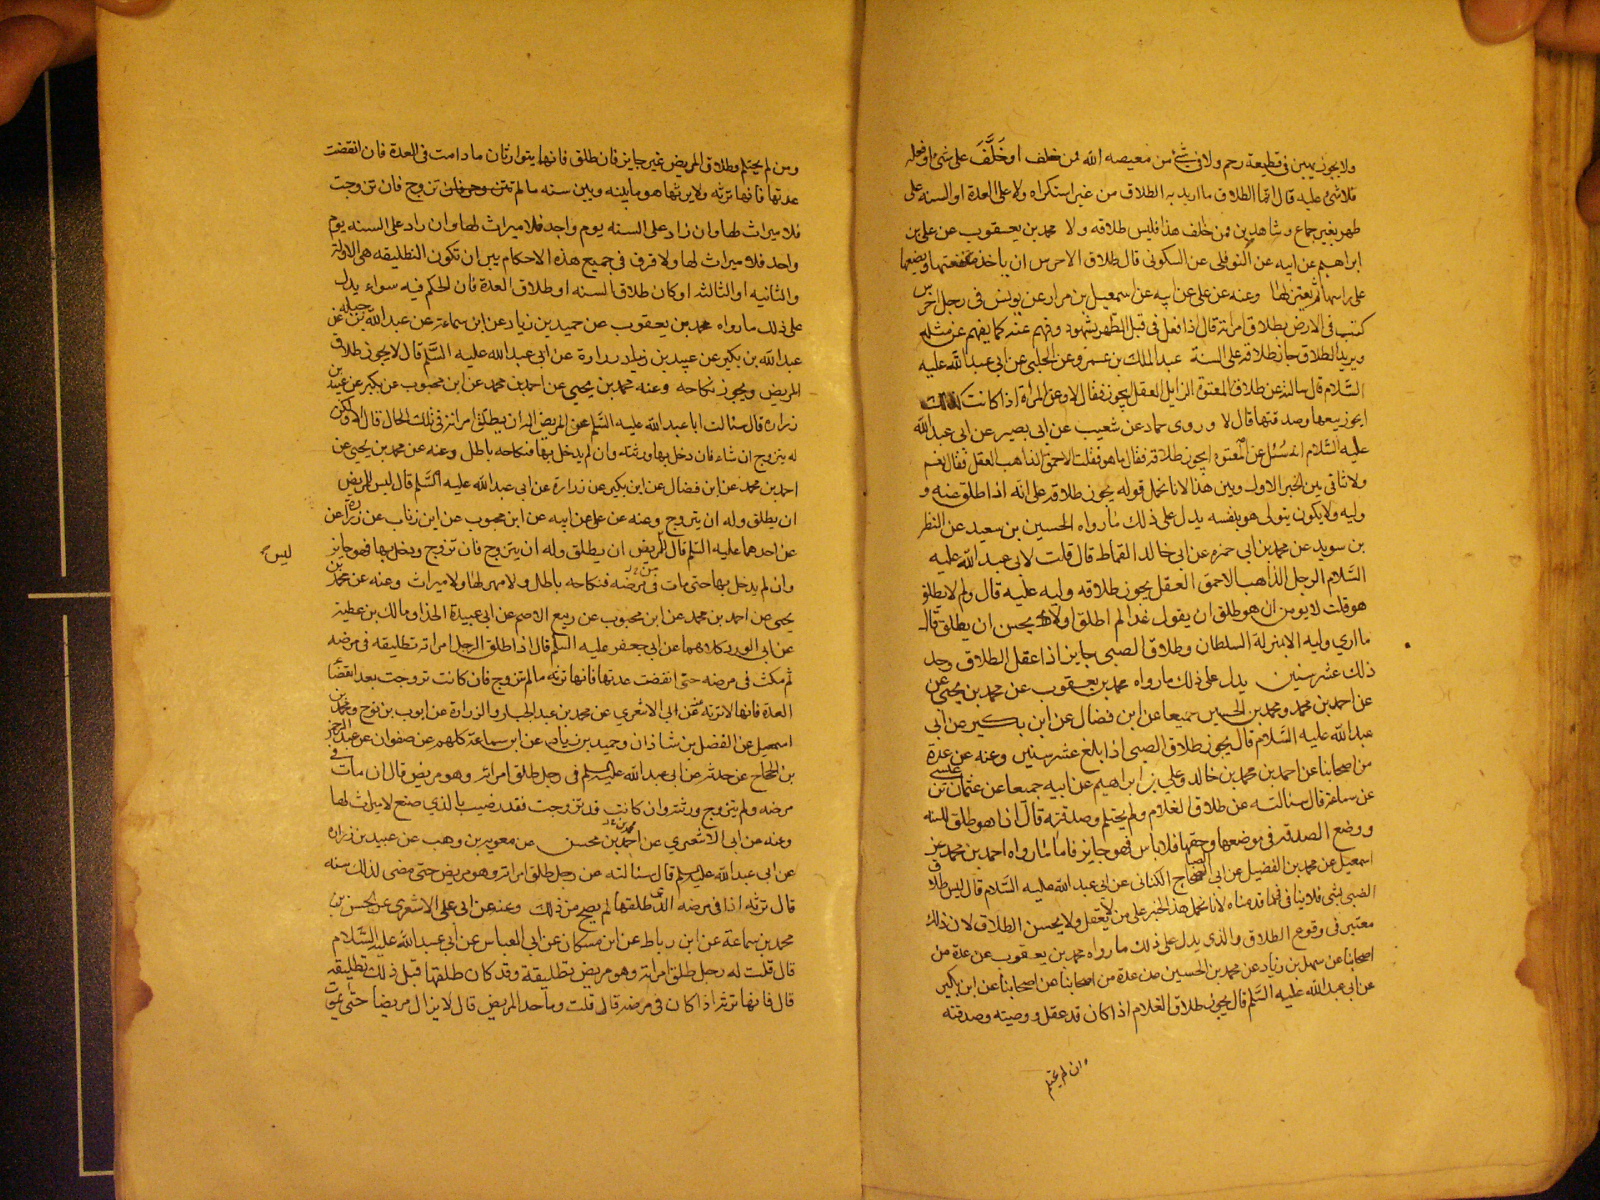 ولا يجوز يمين في قطيعة رحم ولا في شئ من معيصه الله فمن خلف او خُلِّفَ على شئ او فعله
فلا شئ عليه قال انما الطلاق ما اريد به الطلاق من غير استكراه ولا على العدة او السنه على
طهر بغير جماع وشاهدين فمن خلف هذا فليس طلاقه ولا محمد بن يعقوب عن علي بن
ابراهيم عن ابيه عن النوفلي عن السكوني قال طلاق الاخرس ان ياخذ مقنعتها ويضعها
على راسها ثم يعتزلها وعنه عن علي عن ابيه عن اسمعيل بن مرار عن يونس في رجل اخرس
كتب في الارض بطلاق امراته قال اذا فعل في قبل الطهر بشهود وفهم عنه كما يفهم عن مثله
ويريد الطلاق جاز طلاقه على السنة عبد الملك بن عمرو عن الحلبي عن ابي عبد الله عليه
السّلام قال سالته عن طلاق المعتوه الزايل العقل ايجوز فقال لا وعن المراة اذا كانت كذلك
ايجوز بيعها وصدقتها قال لا وروى حماد عن شعيب عن ابي بصير عن ابي عبد الله
عليه السّلام انه سُئل عن المعتوه ايجوز طلاقه فقال ما هو فقلت الاحمق الذاهب العقل فقال نعم
ولا تنافي بين الخبر الاول وبين هذا لانا نحمل قوله يجوز طلاقه على انه اذا طلق عنه و
وليه ولا يكون يتولى هو بنفسه يدل على ذلك ما رواه الحسين بن سعيد عن النظر
بن سويد عن محمد بن ابي حمزه عن ابي خالد القماط قال قلت لابي عبد الله عليه
السّلام الرجل الذاهب الاحمق العقل يجوز طلاقه وليه عليه قال ولم لا يطلق
هو قلت لا يومن ان هو طلق ان يقول غدا لم اطلق او لا يحسن ان يطلق قال
ما اري وليه الا بمنزلة السلطان وطلاق الصبي جايز اذا عقل الطلاق وحد
ذلك عشر سنين يدل على ذلك ما رواه محمد بن يعقوب عن محمد بن يحيى عن
عن احمد بن محمد ومحمد بن الحسين جميعا عن ابن فضال عن ابن بكير عن ابي
عبد الله عليه السّلام قال يجوز طلاق الصبي اذا بلغ عشر سنين وعنه عن عدة
من اصحابنا عن احمد بن محمد بن خالد وعلي بن ابراهيم عن ابيه جميعا عن عثمان بن عيسى
عن سماعة قال سئالته عن طلاق الغلام ولم يحتلم وصدقته قال اذا هو طلق للسنه
ووضع الصدقه في موضعها وحقها فلا باس فهو جايز فاما ما رواه احمد بن محمد عن
اسمعيل عن محمد بن الفضيل عن ابي الصباح الكناني عن ابي عبد الله عليه السّلام قال ليس طلاق
الصبي بشئ فلا ينافي ما قدمناه لانا نحمل هذا الخبر على من لا يعقل ولا يحسن الطلاق لان ذلك
معتبر في وقوع الطلاق والذي يدل على ذلك ما رواه محمد بن يعقوب عن عدة من
اصحابنا عن سهل بن زياد عن محمد بن الحسين عن عدة من اصحابنا عن ابن بكير
عن ابي عبد الله عليه السّلم قال يجوز طلاق الغلام اذا كان قد عقل ووصيته وصدقته
وان لم يحتلم
ومن لم يحتلم وطلاق المريض غير جايز فان طلق فانهما يتوارثان ما دامت في العدة فان انقضت
عدتها فانها ترثه ولا يرثها هو ما بينه وبين سنه ما لم تتزوج فان تزوجت
فلا ميراث لها وان زاد على السنه يوم واحد فلا ميراث لها وان زاد على السنه يوم
واحد فلا ميراث لها ولا فرق في جميع هذه الاحكام بين ان تكون التطليقه هي الاولة
والثانيه او الثالثه او كان طلاق السنه او طلاق العدة فان الحكم فيه سواء يدل
على ذلك ما رواه محمد بن يعقوب عن حميد بن زياد عن ابن سماعة عن عبد الله بن جبله عن
عبد الله بن بكير عن عبيد بن زرارة عن ابي عبد الله عليه السّلم قال لا يجوز طلاق
المريض ويجوز نكاحه وعنه محمد بن يحيى عن احمد بن محمد عن ابن محبوب عن بكير عن عبيد بن
زراره قال سئالت ابا عبد الله عليه السّلم عن المريض اله ان يطلق امراته في تلك الحال قال لا ولكن
له يتزوج ان شاء فان دخل بها ورثته وان لم يدخل بها فنكاحه باطل وعنه عن محمد بن يحيى عن
احمد بن محمد عن ابن فضال عن ابن بكير عن زرارة عن ابي عبد الله عليه السّلم قال ليس للمريض
ان يطلق وله ان يتزوج وعنه عن علي عن ابيه عن ابن محبوب عن ابن رئاب عن زرارة عن
عن احدهما عليه السّلم قال للمريض ان يطلق وله ان يتزوج فان تزوج ودخل بها فهو جايز
ليس
وان لم يدخل بها حتى مات في مرضه فنكاحه باطل ولا مهر لها ولا ميراث وعنه عن محمد بن
يحيى عن احمد بن محمد عن ابن محبوب عن ربيع الاصم عن ابي عبيدة الحذا ومالك بن عطية
عن ابي الورد كلاهما عن ابي جعفر عليه السّلم قال اذا طلق الرجل امراته تطليقه في مرضه
ثم مكث في مرضه حتى انقضت عدتها فانها ترثه ما لم تتزوج فان كانت تزوجت بعد انقضاء
العدة فانها لا ترثه عن ابي الاشعري عن محمد بن عبد الجبار والرزاز عن ايوب بن نوح ومحمد بن
اسمعيل عن الفضل بن شاذان وحميد بن زياد عن ابن سماعة كلهم عن صفوان عن عبد الرحمن
بن الحجاج عن حدثه عن ابي عبد الله عليه السلم في رجل طلق امراته وهو مريض قال ان مات في
مرضه ولم يتزوج ورثته وان كانت قد تزوجت فقد رضيت بالذي صنع لا ميراث لها
وعنه عن ابي الاشعري عن احمد بن محسن عن معويه بن وهب عن عبيد بن زراره
عن ابي عبد الله عليه السلم قال سئالته عن رجل طلق امراته وهو مريض حتى مضى لذلك سنه
قال ترثه اذا في مرضه الذي طلقها لم يصح من ذلك وعنه عن ابي علي الاشعري عن الحسن بن
محمد بن سماعة عن ابن رباط عن ابن مسكان عن ابي العباس عن ابي عبد الله عليه السّلام
قال قلت له رجل طلق امراته وهو مريض تطليقة وقد كان طلقها قبل ذلك تطليقتين
قال فانها ترثه اذا كان في مرضه قال قلت وما حد المريض قال لا يزال مريضا حتى يموت